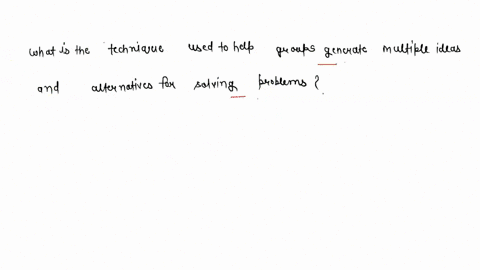 what is the technique used to help groups generate multiple ideas
and alternatives for solving problems ?